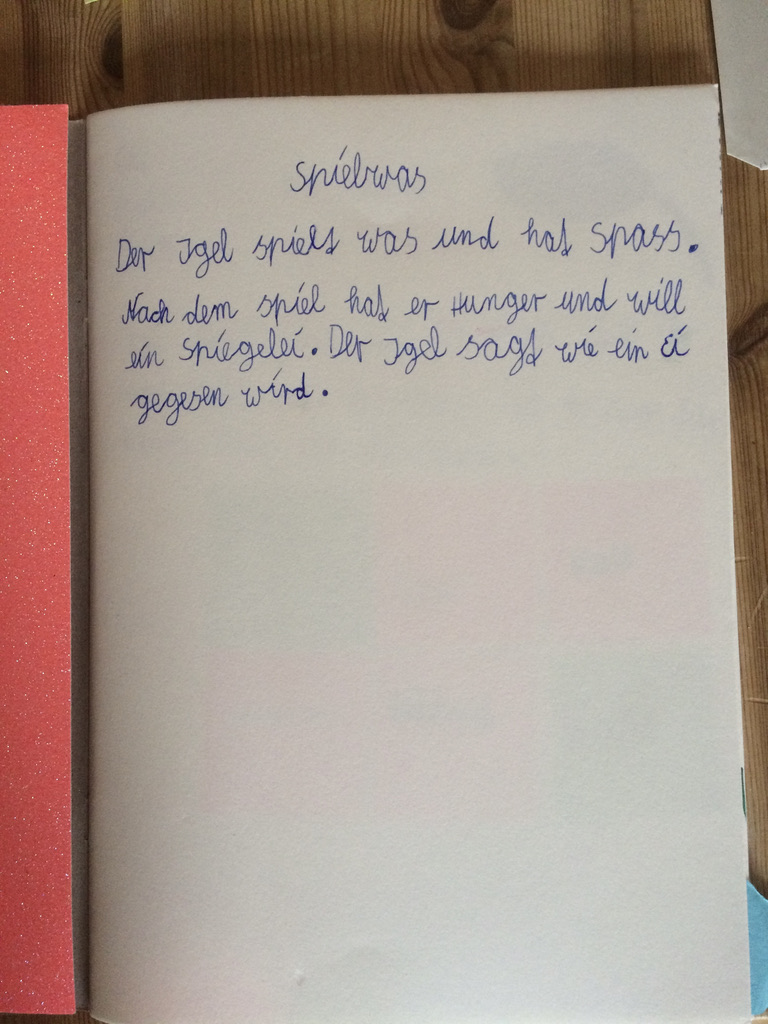 Spielwas
Der Igel spielt was und hat Spass.
Nach dem spiel hat er Hunger und will
ein Spiegelei. Der Igel sagt wie ein Ei
gegesen wird.